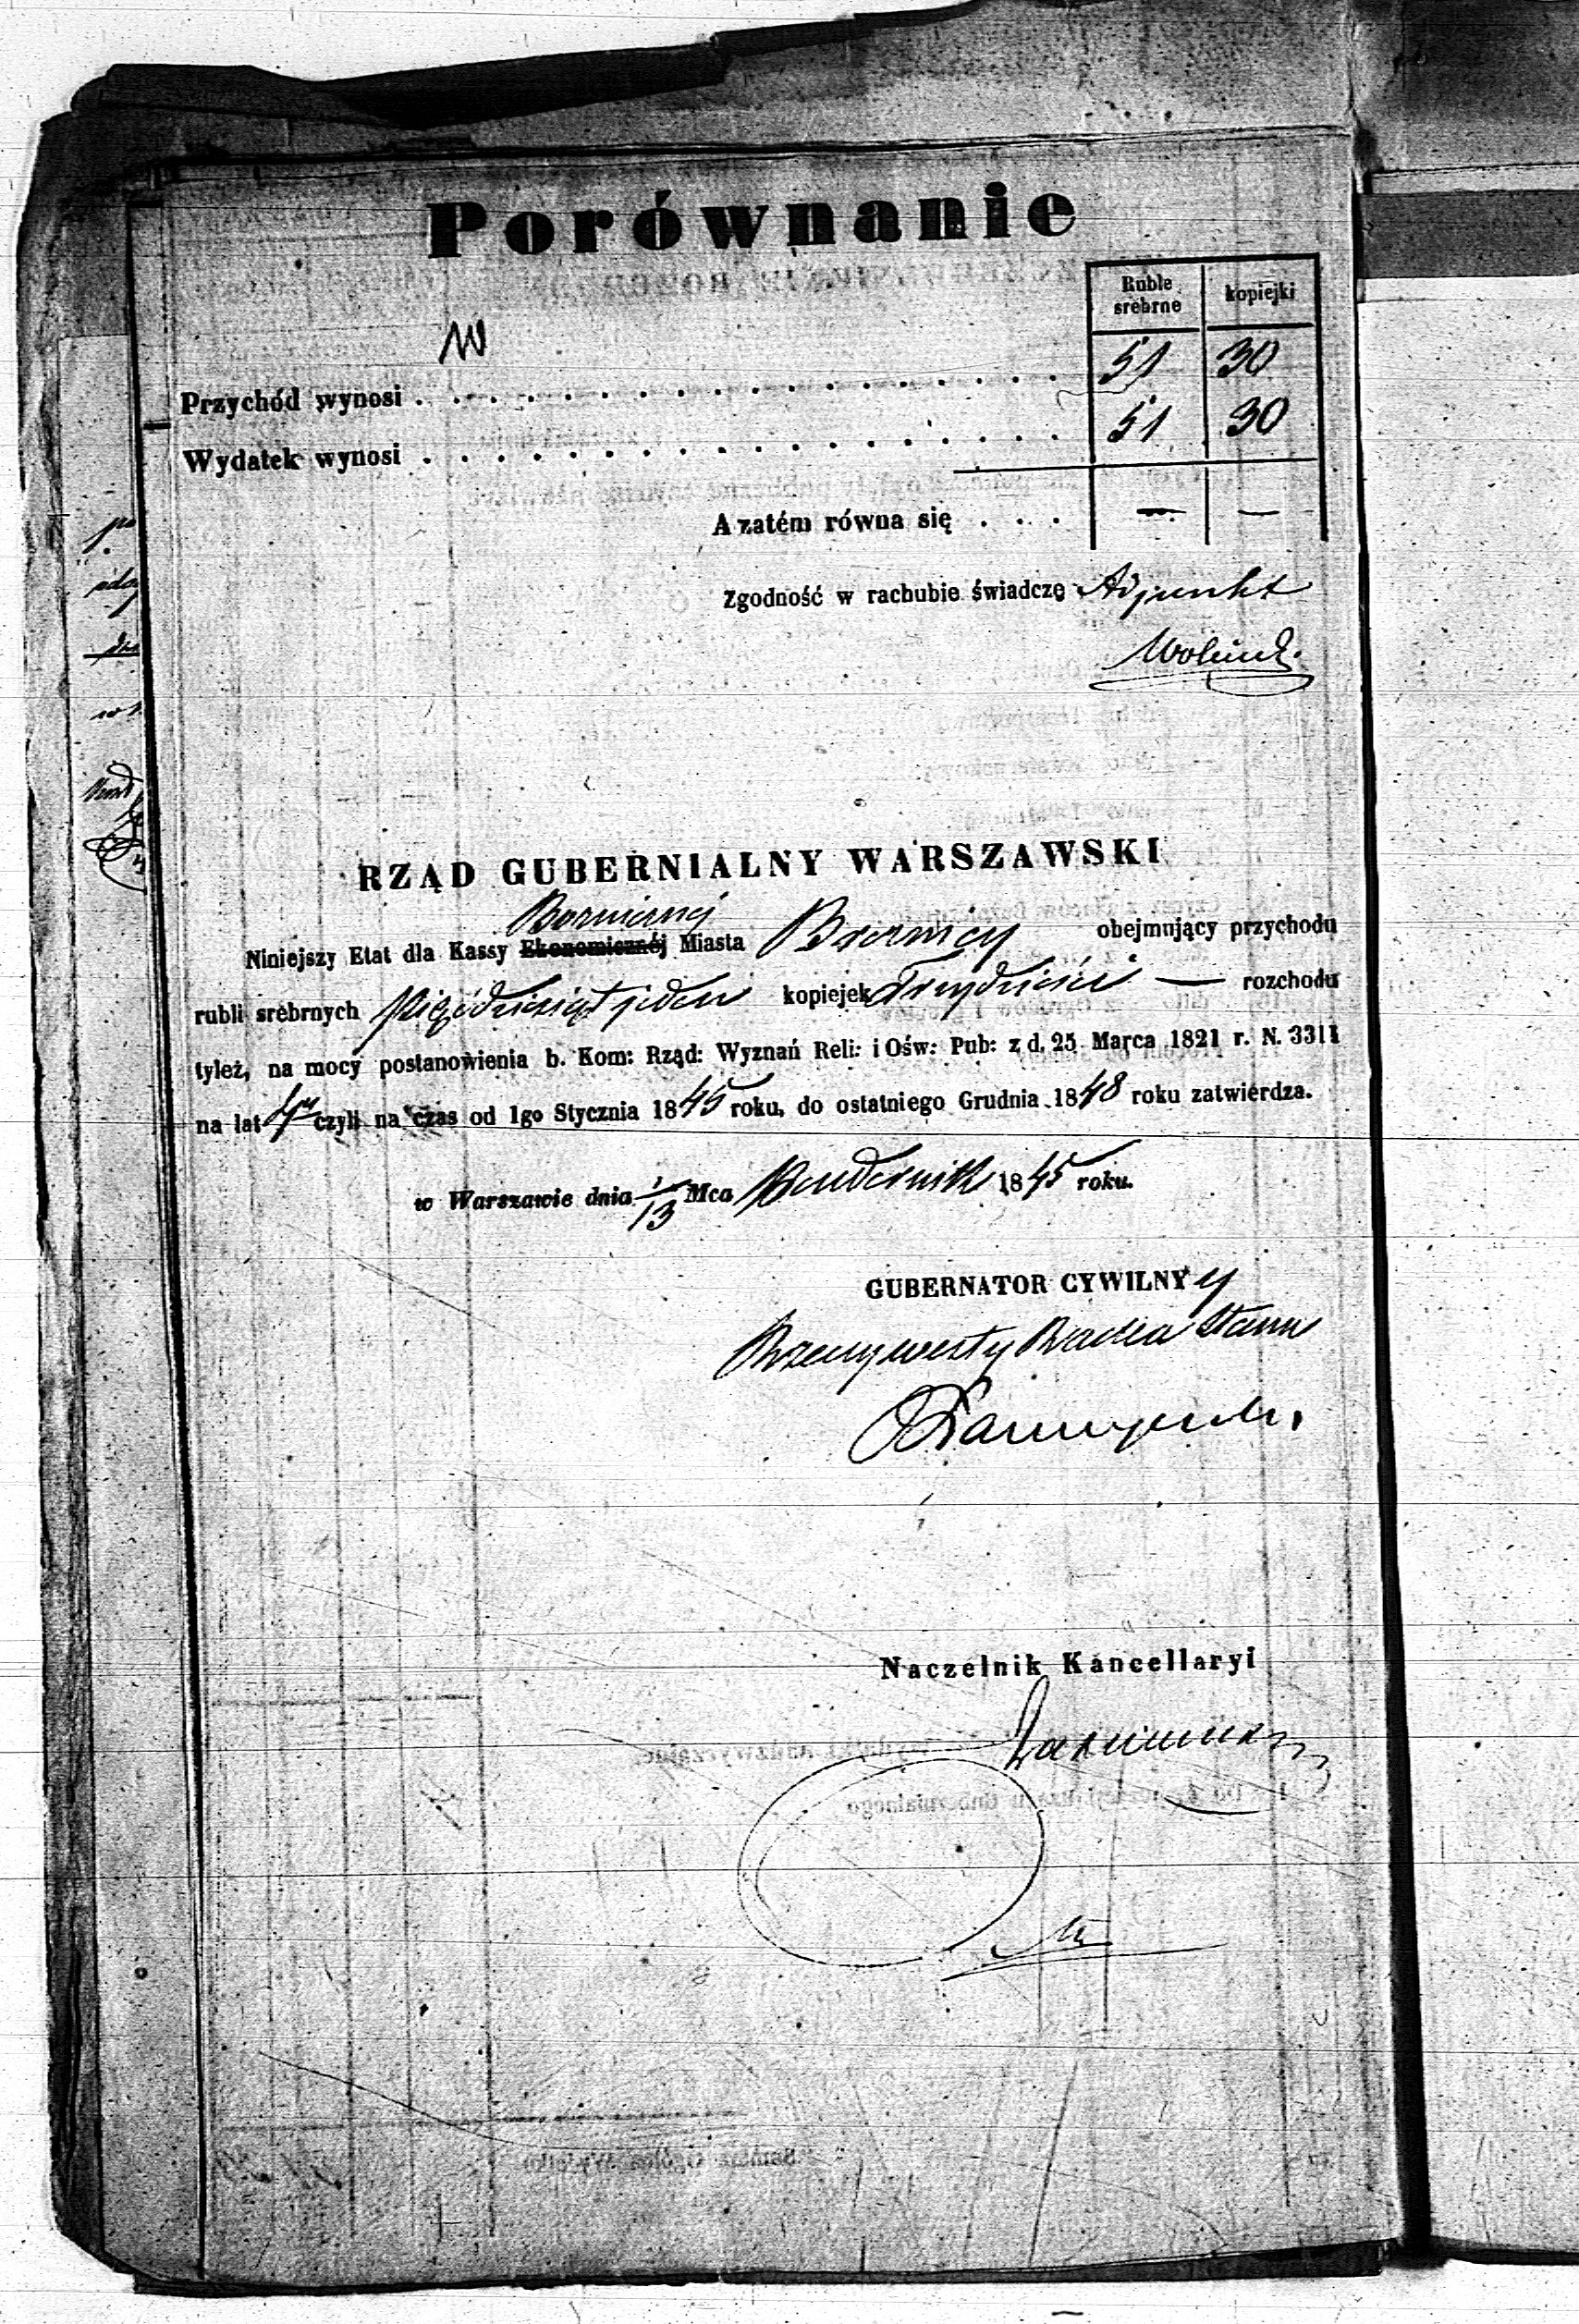 Porównanie
Ruble srebrne kopiejki
Przychód wynosi . . . . . . . . . . . . . . . . . . 51 30
Wydatek wynosi . . . . . . . . . . . . . . . . . . 51 30
A zatém równa się . . . — —
Zgodność w rachubie świadczę Adjunkt
RZĄD GUBERNIALNY WARSZAWSKI
Niniejszy Etat dla Kassy Ekonomicznéj Miasta obejmujący przychodu
rubli srebrnych Pięćdziesiąt jeden kopiejek Trzydzieści — rozchodu
tyleż, na mocy postanowienia b. Kom: Rząd: Wyznań Reli: i Ośw: Pub: z d. 25 Marca 1821 r. N. 3311
na lat 4 czyli na czas od 1go Stycznia 1845 roku, do ostatniego Grudnia 1848 roku zatwierdza.
w Warszawie dnia 1/13 Mca Październik 1845 roku.
GUBERNATOR CYWILNY
Rzeczywisty Radca Stanu
Naczelnik Kancellaryi